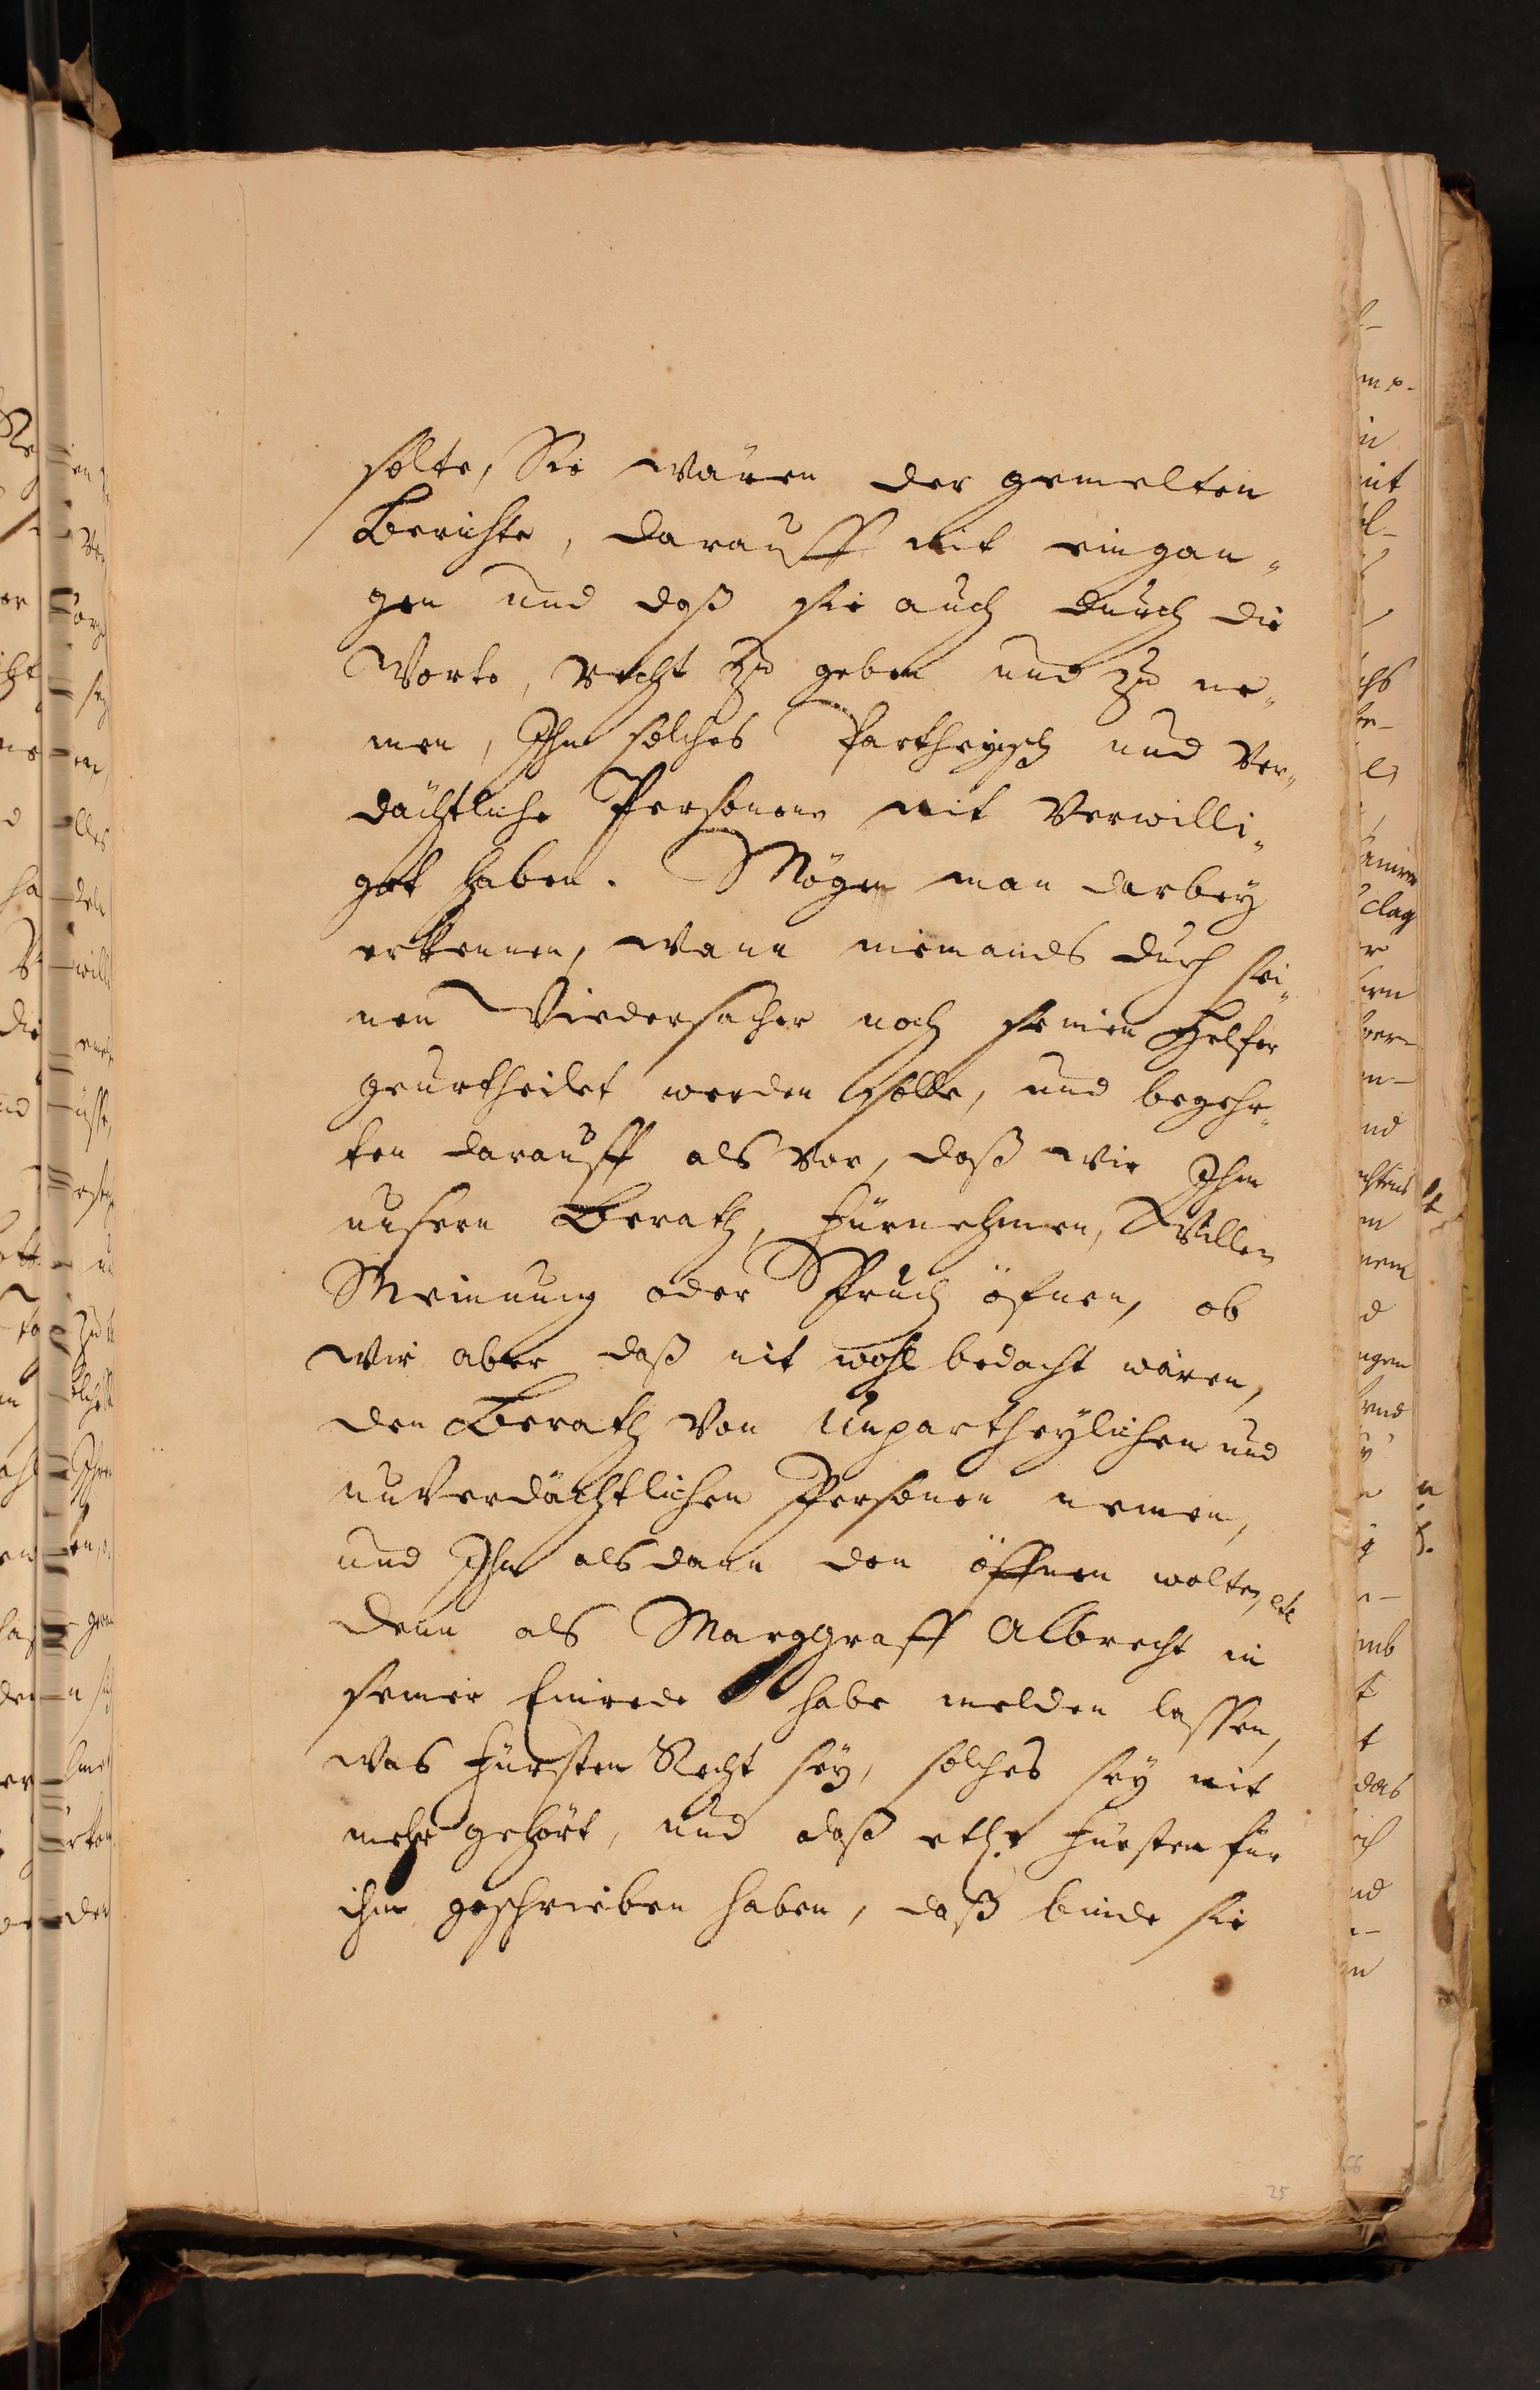 solte, Sie wären der gemelten
Berichte, darauff nit eingan„
gen und daß sie auch durch die
Worte, Recht zu geben und zu ne„
men, Ihm solches Partheyisch und Ver„
dächtliche Personen nit Verwilli„
get haben. Mögen man darbey
erkennen, wann niemands durch sei„
nen Wiedersacher noch seinen Helfer
geurtheilet werden solle, und begehr„
ten darauff als vor, daß wir Ihm
unsern Berath, Fürnehmen, Willen
Meinung oder Spruch öfnen, ob
wir aber daß nit wohl bedacht wären,
den Berath von Unpartheylichen und
unVerdächtlichen Personen nemen,
und Ihm alsdann den öffnen wolten, etc
denn als Marggraff Albrecht in
seiner Einrede habe melden lassen,
was Fürsten Recht sey, solches sey nit
mehr gehört, und daß etl. Fürsten für
ihm geschrieben haben, daß binde sie
25